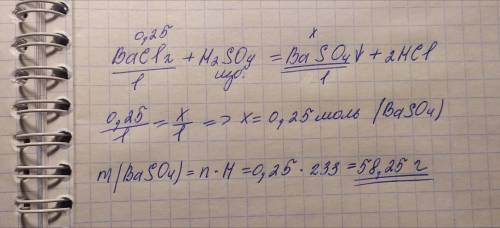 0,25 x
BaCl2 + H2SO4 = BaSO4↓ + 2HCl
1 изб. 1
0,25/1 = x/1 => x = 0,25 моль (BaSO4)
m(BaSO4) = n · M = 0,25 · 233 = 58,25 г